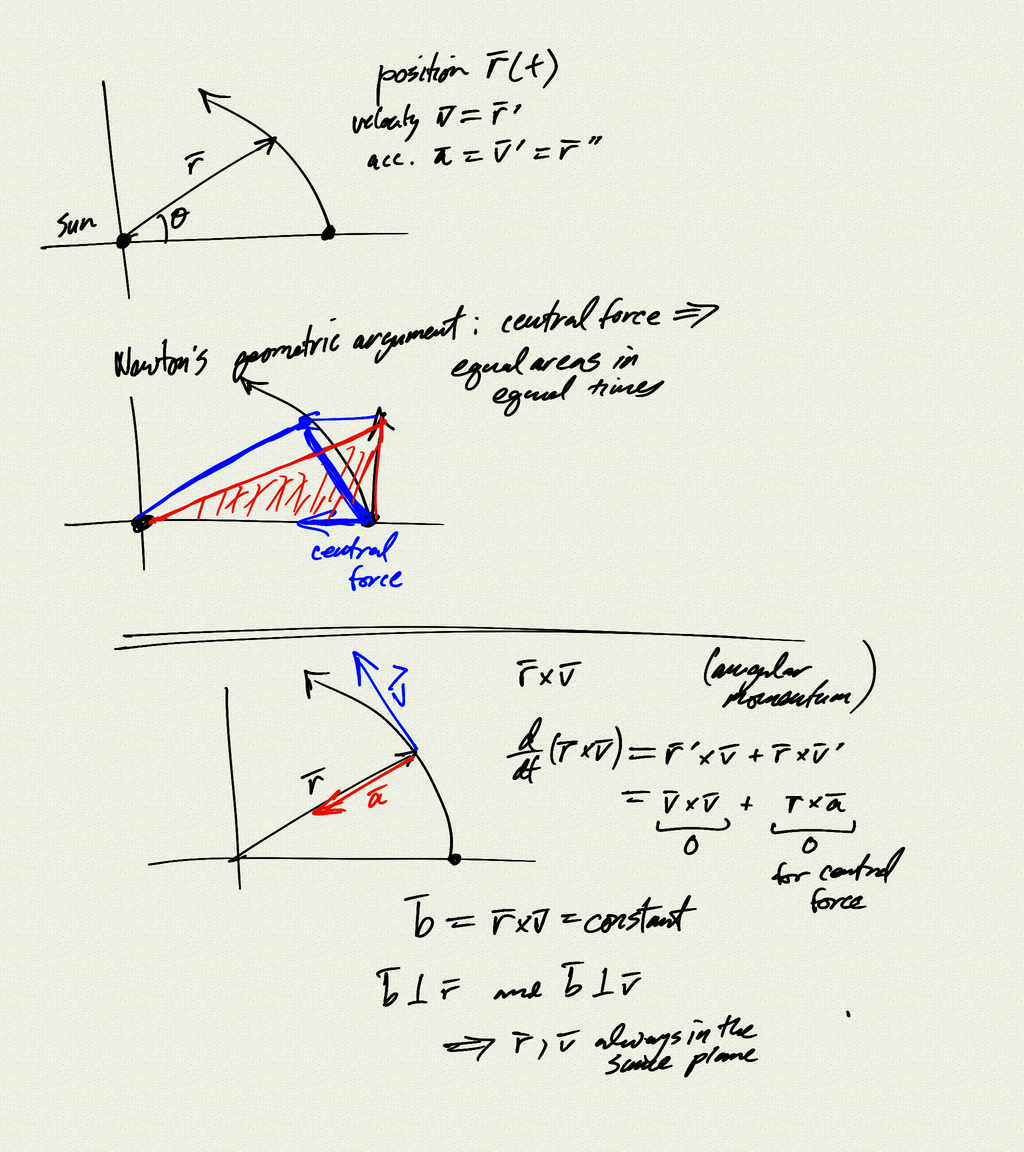 position r̄(t)
velocity v̄ = r̄'
acc. ā = v̄' = r̄"
r̄
Sun
θ
Newton's geometric argument: central force ⇒
equal areas in
equal times
central
force
r̄×v̄ (angular
momentum)
v⃗
d/dt (r̄×v̄) = r̄'×v̄ + r̄×v̄'
r̄
ā
= v̄×v̄ + r×ā
0 0
for central
force
b̄ = r̄×v̄ = constant
b̄ ⊥ r̄ and b̄ ⊥ v̄
⇒ r̄, v̄ always in the
same plane